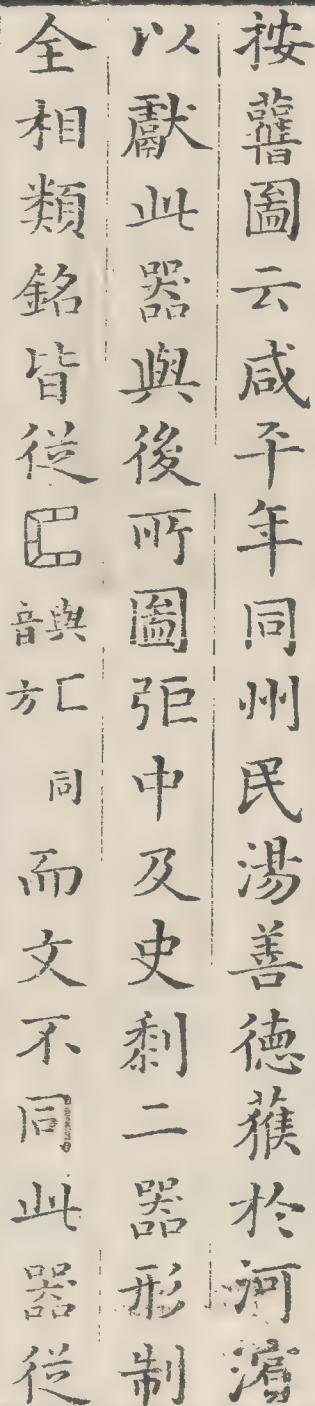 按舊圖云咸平年同州民湯善德獲於河濱
以獻此器與後所圖弡中及史剩二器形制
全相類銘皆從匚與匚同音方而文不同此器從